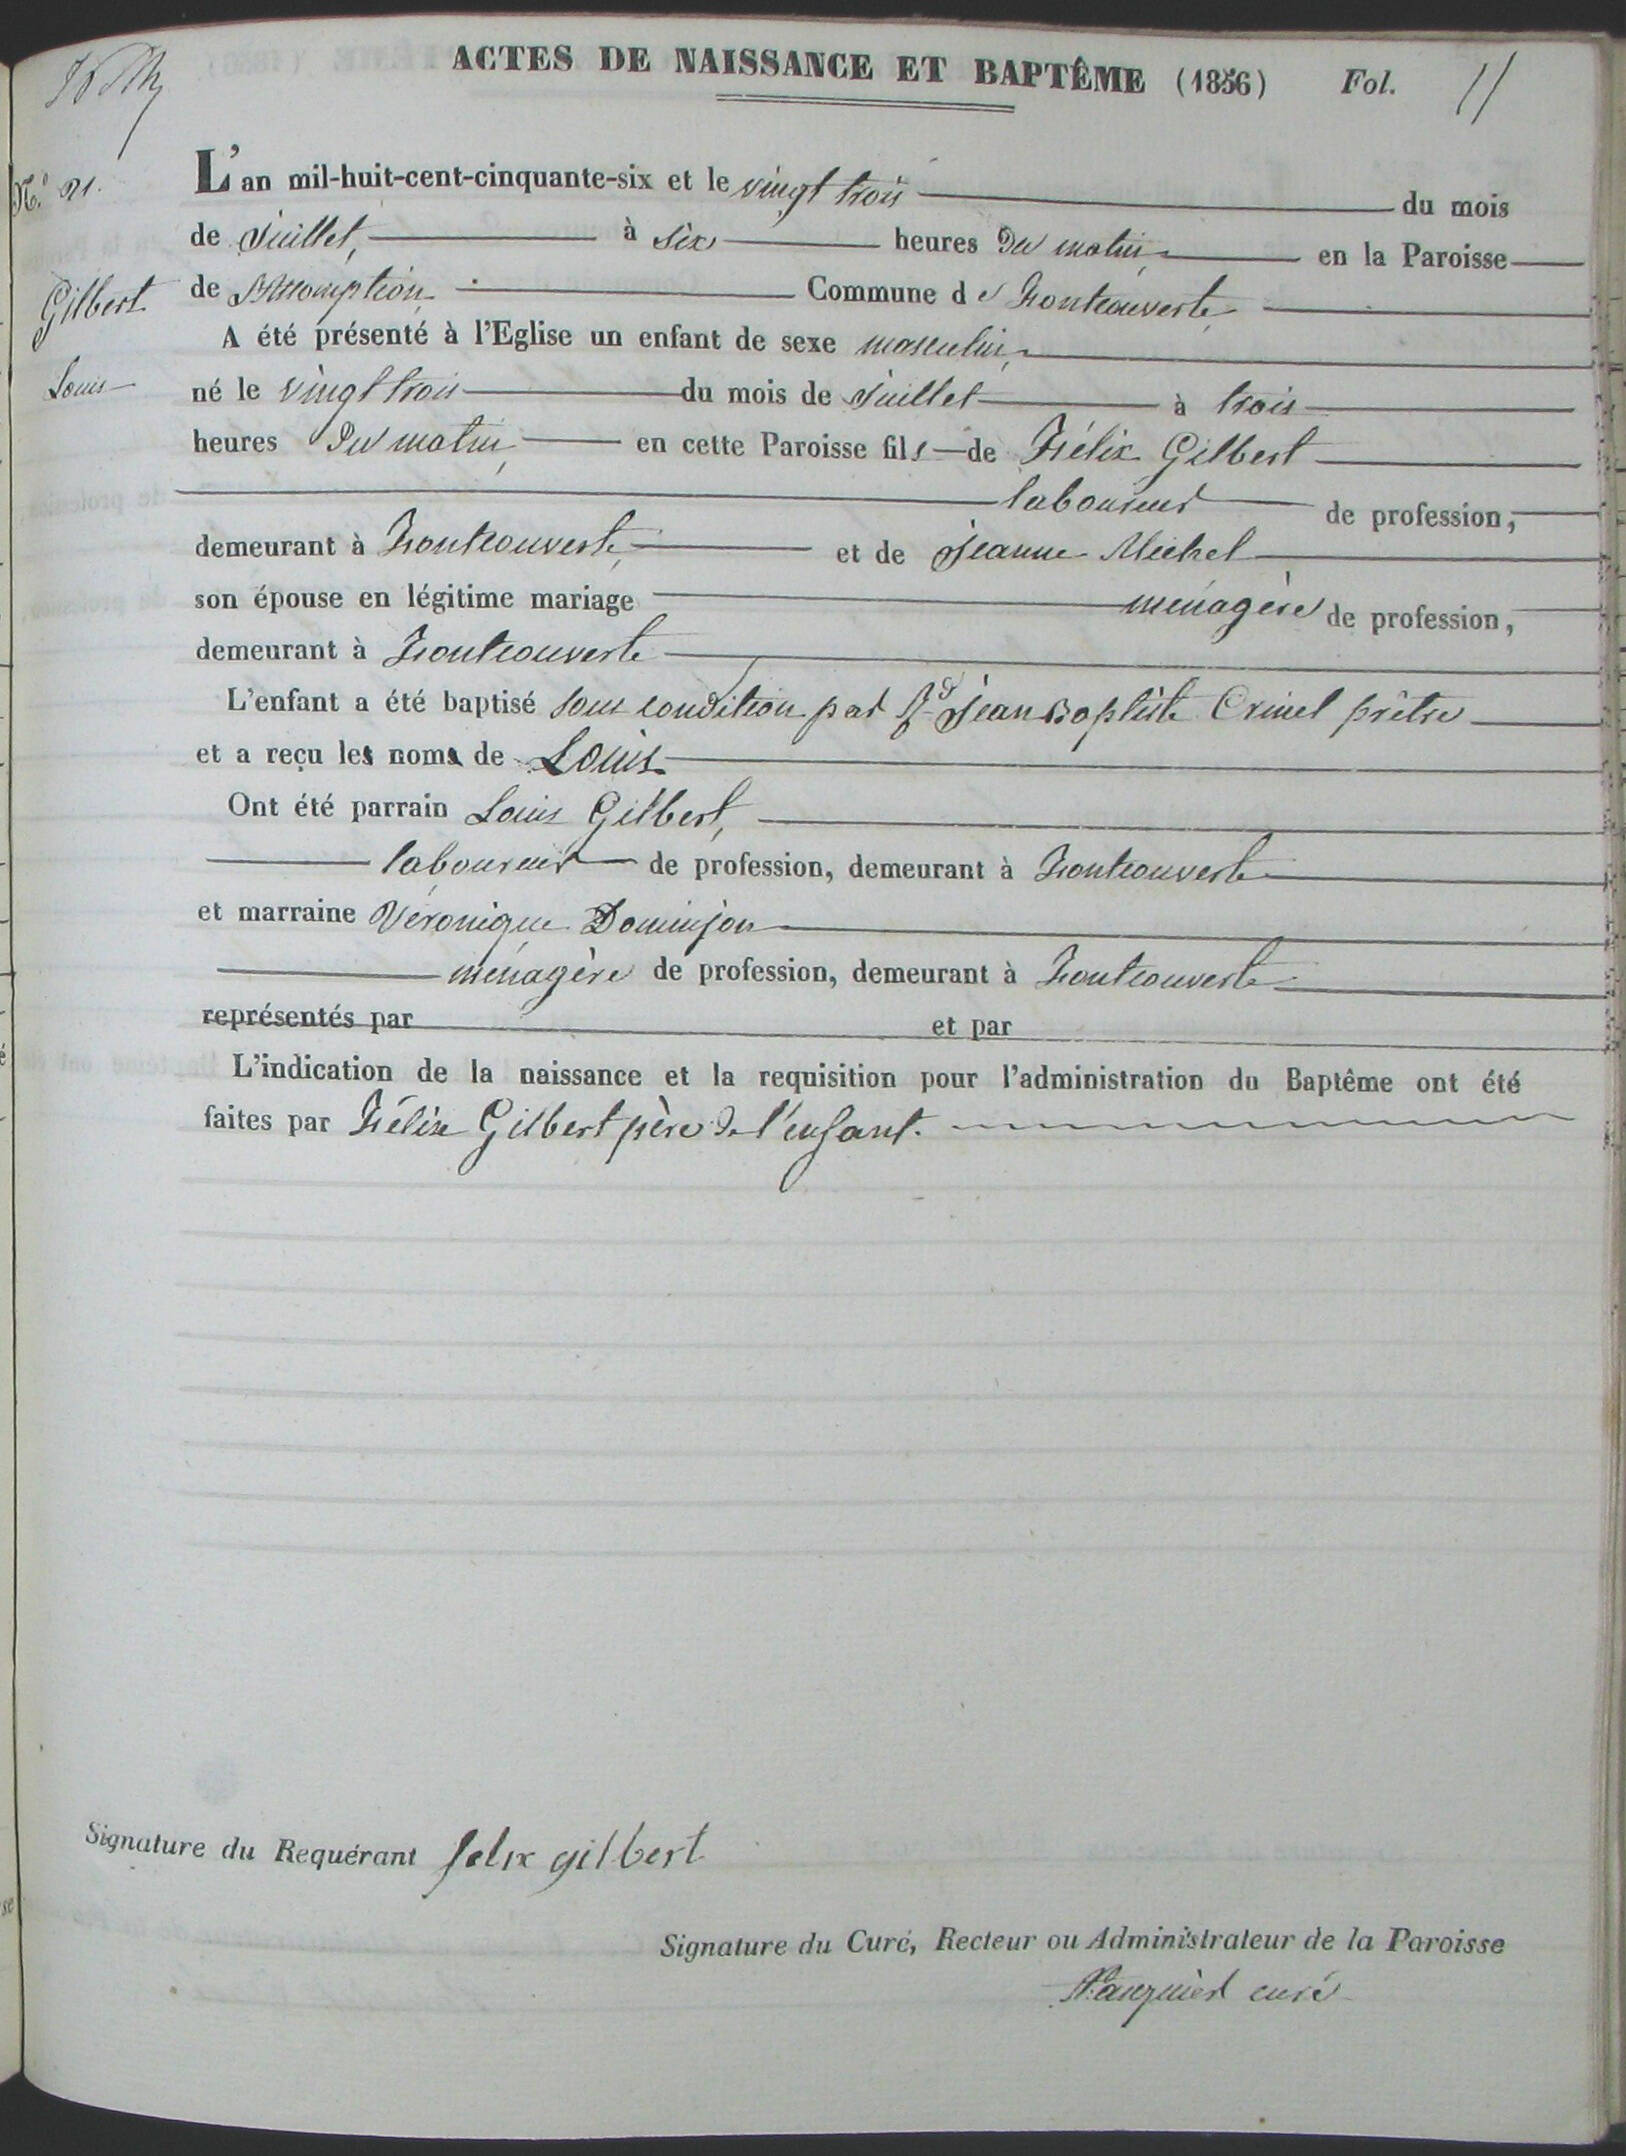 ACTES DE NAISSANCE ET BAPTÊME (1856) Fol. 11
N.º 21.
Gilbert
Louis
L'an mil-huit-cent-cinquante-six et le vingt trois du mois
de Juillet, à six heures du matin en la Paroisse
de l'Assomption Commune de Frontcouverte
A été présenté à l'Eglise un enfant de sexe masculin,
né le vingt trois du mois de Juillet à trois
heures du matin, en cette Paroisse fils de Félix Gilbert
laboureur de profession,
demeurant à Frontcouverte, et de Jeanne Michel
son épouse en légitime mariage ménagère de profession,
demeurant à Frontcouverte
L'enfant a été baptisé sous condition par Rd Jean Baptiste Crinel prêtre
et a reçu les noms de Louis
Ont été parrain Louis Gilbert,
laboureur de profession, demeurant à Frontcouverte
et marraine Véronique Dominjon
ménagère de profession, demeurant à Frontcouverte
représentés par et par
L'indication de la naissance et la requisition pour l'administration du Baptême ont été
faites par Félix Gilbert père de l'enfant.
Signature du Requérant felix gilbert
Signature du Curé, Recteur ou Administrateur de la Paroisse
curé